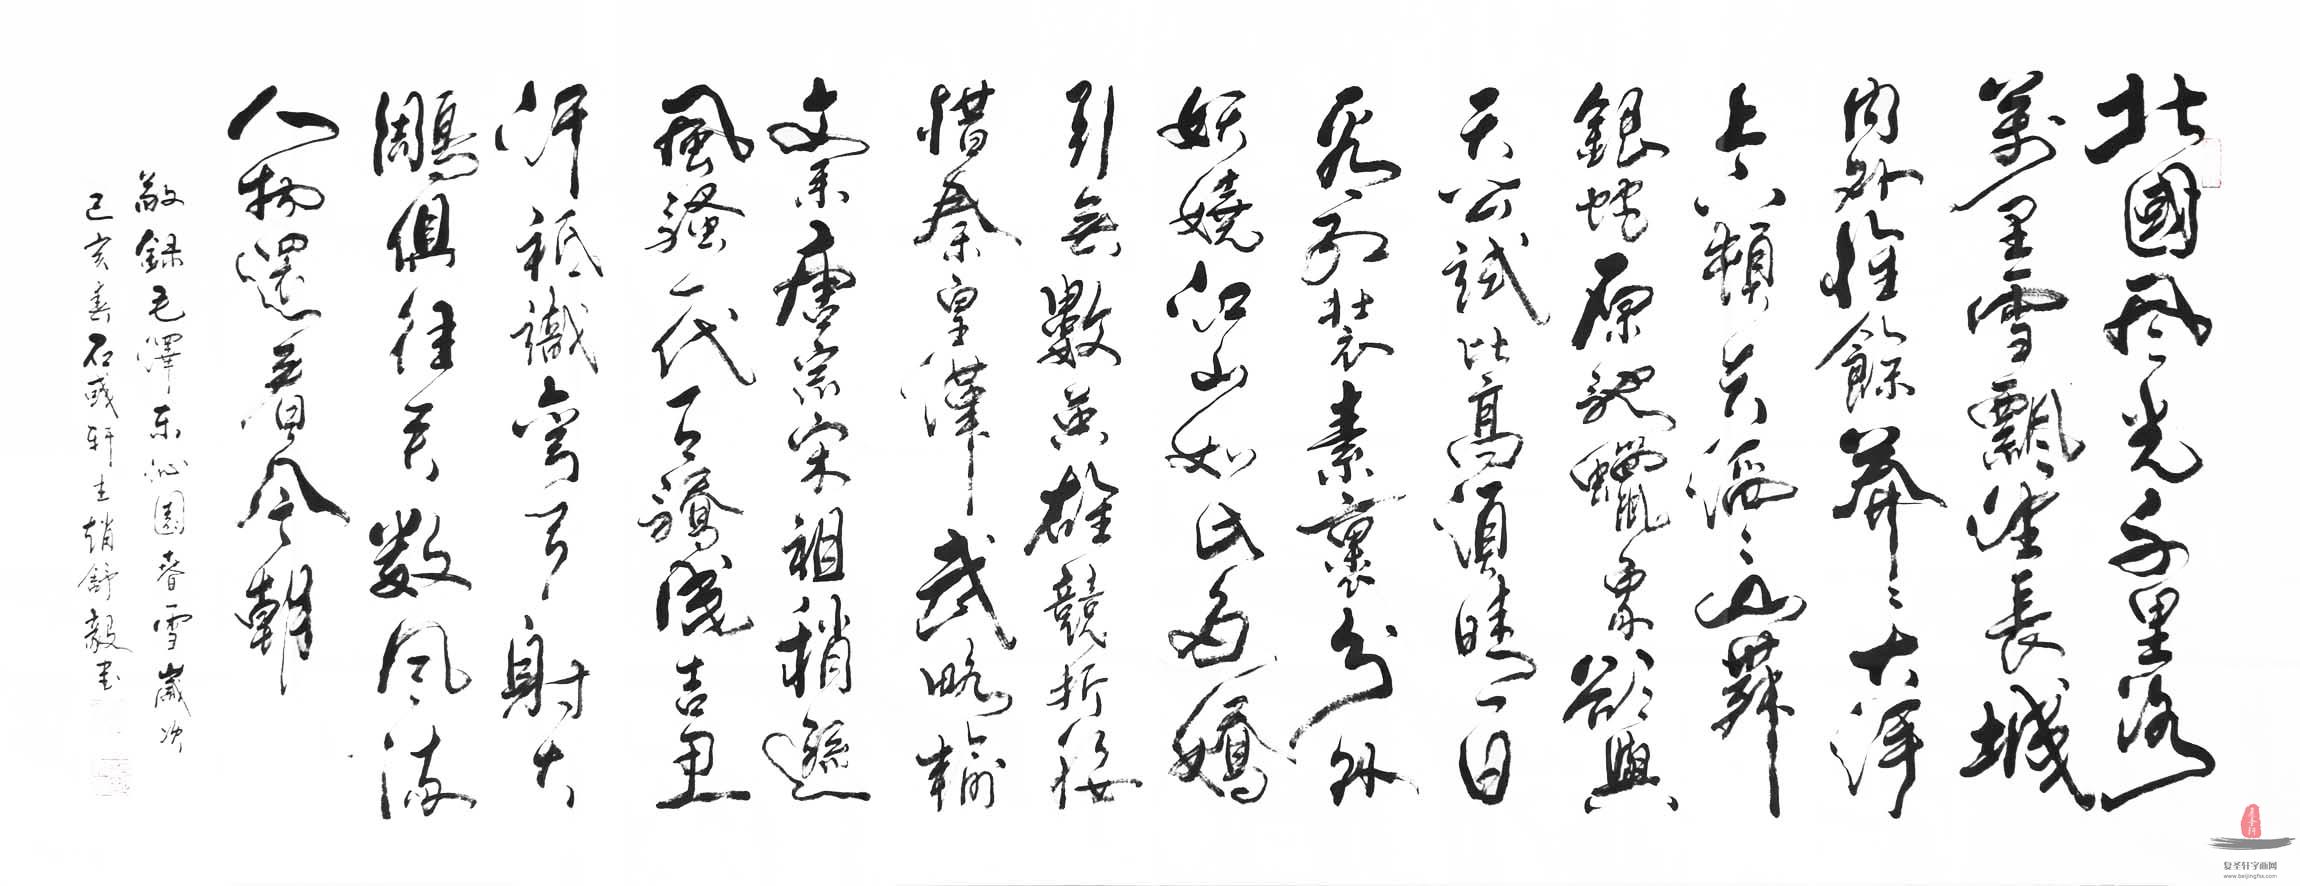 北國风光千里
萬里雪飄望長城
内外惟餘莽々大河
上下頓失滔々山舞
銀蛇原馳蠟象欲與
天公試比高須晴日
看紅裝素裹分外
妖嬈江山如此多嬌
引無數英雄競折腰
惜秦皇漢武略輸
文采唐宗宋祖稍遜
風騷一代天驕成吉思
汗祗識彎弓射大
鵰俱往矣数风流
人物還看今朝
敬録毛澤东沁園春雪歲次
己亥春石彧轩主趙舒毅書
复圣轩字画网
www.beijingfsx.com